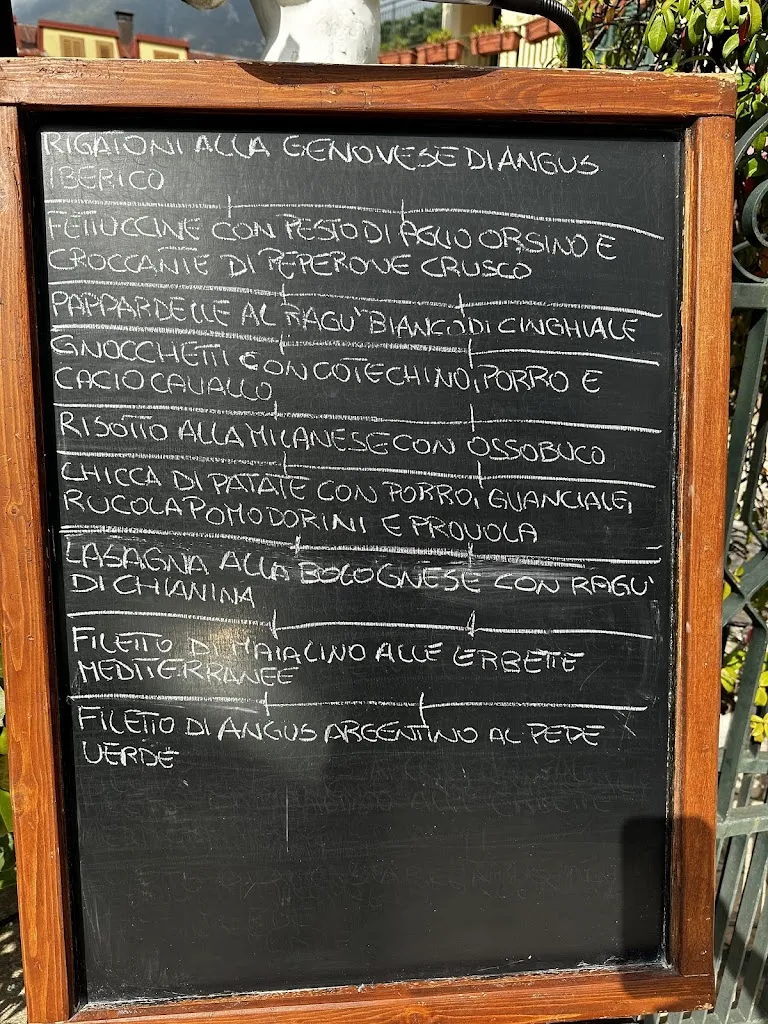 RIGATONI ALLA GENOVESE DI ANGUS
IBERICO
FETTUCCINE CON PESTO DI AGLIO ORSINO E
CROCCANTE DI PEPERONE CRUSCO
PAPPARDELLE AL RAGU' BIANCO DI CINGHIALE
GNOCCHETTI CON COTECHINO, PORRO E
CACIOCAVALLO
RISOTTO ALLA MILANESE CON OSSOBUCO
CHICCA DI PATATE CON PORRO, GUANCIALE,
RUCOLA POMODORINI E PROVOLA
LASAGNA ALLA BOLOGNESE CON RAGU'
DI CHIANINA
FILETTO DI MAIALINO ALLE ERBETTE
MEDITERRANEE
FILETTO DI ANGUS ARGENTINO AL PEPE
VERDE